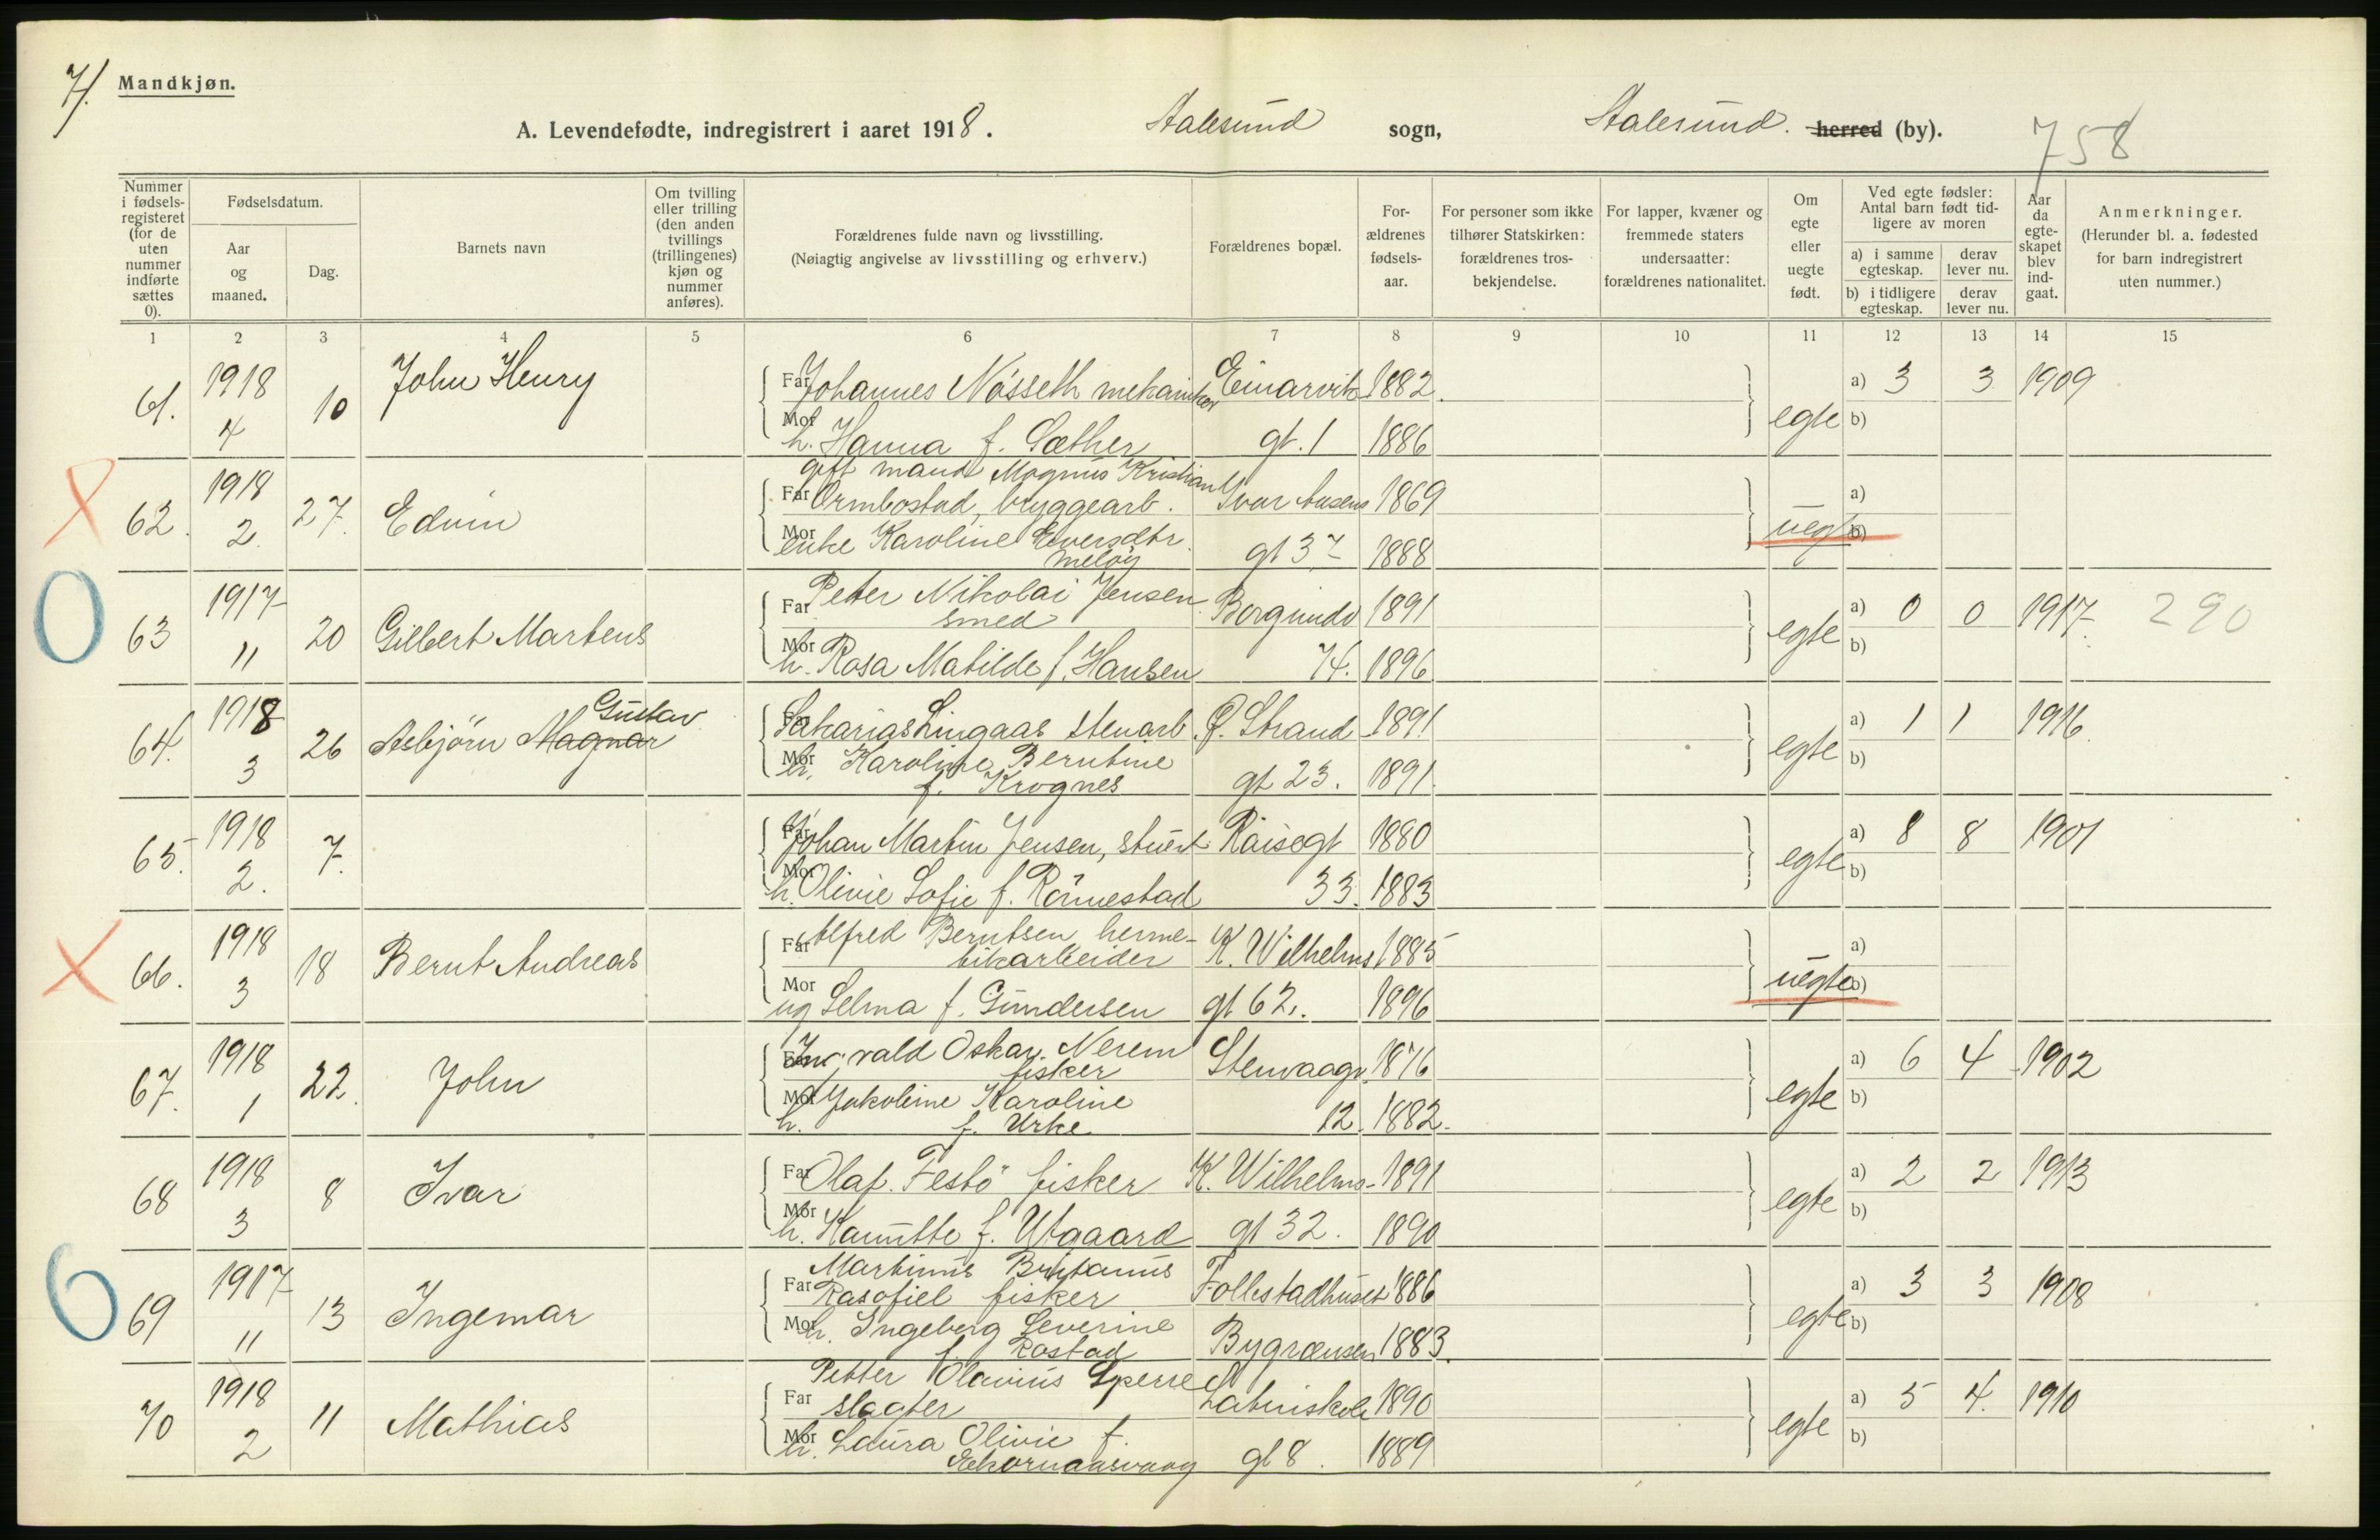 7/.
Mandkjøn.
A. Levendefødte, indregistrert i aaret 1918. Aalesund sogn, Aalesund. herred (by).
758
Nummer i fødselsregisteret (for de uten nummer indførte sættes 0).
Fødselsdatum.
Aar og maaned.
Dag.
Barnets navn
Om tvilling eller trilling (den anden tvillings (trillingenes) kjøn og nummer anføres).
Forældrenes fulde navn og livsstilling.
(Nøiagtig angivelse av livsstilling og erhverv.)
Forældrenes bopæl.
Forældrenes fødselsaar.
For personer som ikke tilhører Statskirken: forældrenes trosbekjendelse.
For lapper, kvæner og fremmede staters undersaatter: forældrenes nationalitet.
Om egte eller uegte født.
Ved egte fødsler: Antal barn født tidligere av moren
a) i samme egteskap.
derav lever nu.
b) i tidligere egteskap.
derav lever nu.
Aar da egteskapet blev indgaat.
Anmerkninger.
(Herunder bl. a. fødested for barn indregistrert uten nummer.)
1 2 3 4 5 6 7 8 9 10 11 12 13 14 15
61. 1918 4 10 John Henry
Far Johannes Nösseth mekaniker Einarvik 1882
Mor h. Hanna f. Sæther gt. 1 1886
egte a) 3 3 1909
b)
62. 1918 2. 27. Edvin
gift mand Magnus Kristian
Far Ormbostad, bryggearb. Ivar Aasens 1869
Mor enke Karoline Eversdtr.
Meløy gt 37 1888
uegte a)
b)
63 1917 11 20 Gilbert Martens
Far Peter Nikolai Jensen
smed Borgundv 1891
Mor h. Rosa Matilde f. Hansen 74. 1896
egte a) 0 0 1917. 290
b)
64. 1918 3 26 Asbjörn Magnar Gustav
Far Sakarias Lingaas stenarb. Ø. Strand 1891
Mor h. Karoline Berntine
f. Krognes gt 23. 1891.
egte a) 1 1 1916.
b)
65. 1918 2. 7.
Far Johan Martin Jensen, stuert Raisegt 1880
Mor h. Olivie Sofie f. Rönnestad 33. 1883
egte a) 8 8 1901
b)
66. 1918 3 18 Bernt Andreas
Far Alfred Berntsen herme-
tikarbeider K. Wilhelms 1885
Mor ug Selma f. Gundersen gt 62. 1896
uegte a)
b)
67. 1918 1 22. John
Far Ingvald Oskar Nerem
fisker Stenvaagv. 1876
Mor h. Jakobine Karoline
f. Urke 12. 1882.
egte a) 6 4 1902
b)
68 1918 3 8 Ivar
Far Olaf Festö fisker K. Wilhelms- 1891
Mor h. f. Utgaard gt 32. 1890
egte a) 2 2 1913
b)
69 1917 11 13 Ingemar
Martinus
Far fisker Follestadhuset 1886
Mor h. Ingeborg Severine
f. Rostad Bygrænsen 1883.
egte a) 3 3 1908
b)
70 1918 2 11 Mathias
Petter Olavius Sperre
Far slagter Latinskole 1890
Mor h. Laura Olivie f.
Ekornaasvaag gt 8. 1889
egte a) 5 4. 1910
b)